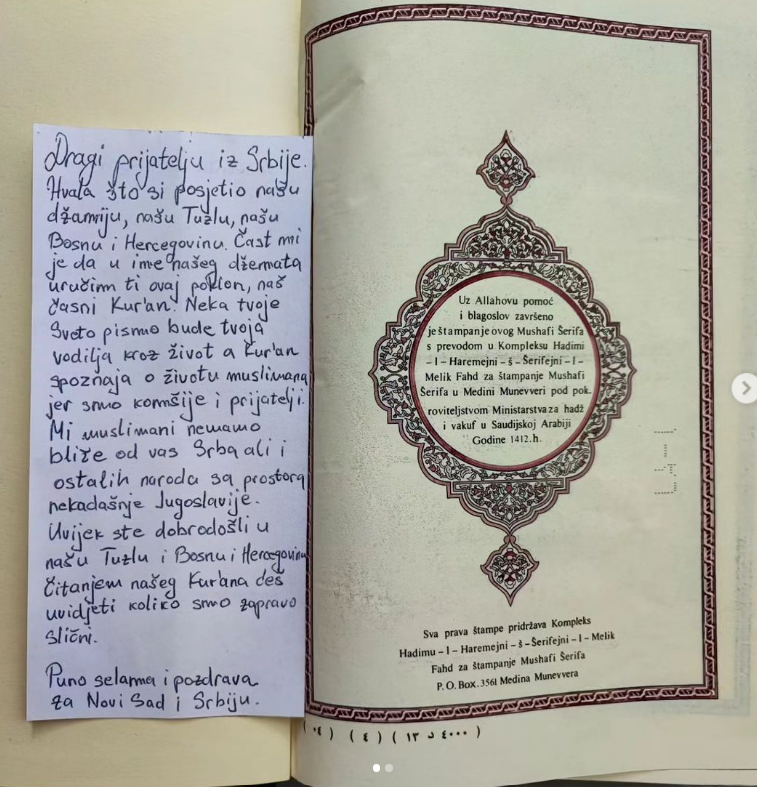 Dragi prijatelju iz Srbije.
Hvala što si posjetio našu
džamiju, našu Tuzlu, našu
Bosnu i Hercegovinu. Čast mi
je da u ime našeg džemata
uručim ti ovaj poklon, naš
časni Kur'an. Neka tvoje
Sveto pismo bude tvoja
vodilja kroz život a Kur'an
spoznaja o životu muslimana
jer smo komšije i prijatelji.
Mi muslimani nemamo
bliže od vas Srba ali i
ostalih naroda sa prostora
nekadašnje Jugoslavije.
Uvijek ste dobrodošli u
našu Tuzlu i Bosnu i Hercegovinu
Čitanjem našeg Kur'ana ćeš
uvidjeti koliko smo zapravo
slični.
Puno selama i pozdrava
za Novi Sad i Srbiju.
Uz Allahovu pomoć
i blagoslov završeno
je štampanje ovog Mushafi Šerifa
s prevodom u Kompleksu Hadimi
– l – Haremejni – š – Šerifejni – l –
Melik Fahd za štampanje Mushafi
Šerifa u Medini Munevveri pod pok.
roviteljstvom Ministarstva za hadž
i vakuf u Saudijskoj Arabiji
Godine 1412.h.
Sva prava štampe pridržava Kompleks
Hadimu – l – Haremejni – š – Šerifejni – l – Melik
Fahd za štampanje Mushafi Šerifa
P. O. Box. 3561 Medina Munevvera
( ٤٠٠٠ د ١٣ ) ( ٤ ) ( ٠٤ )